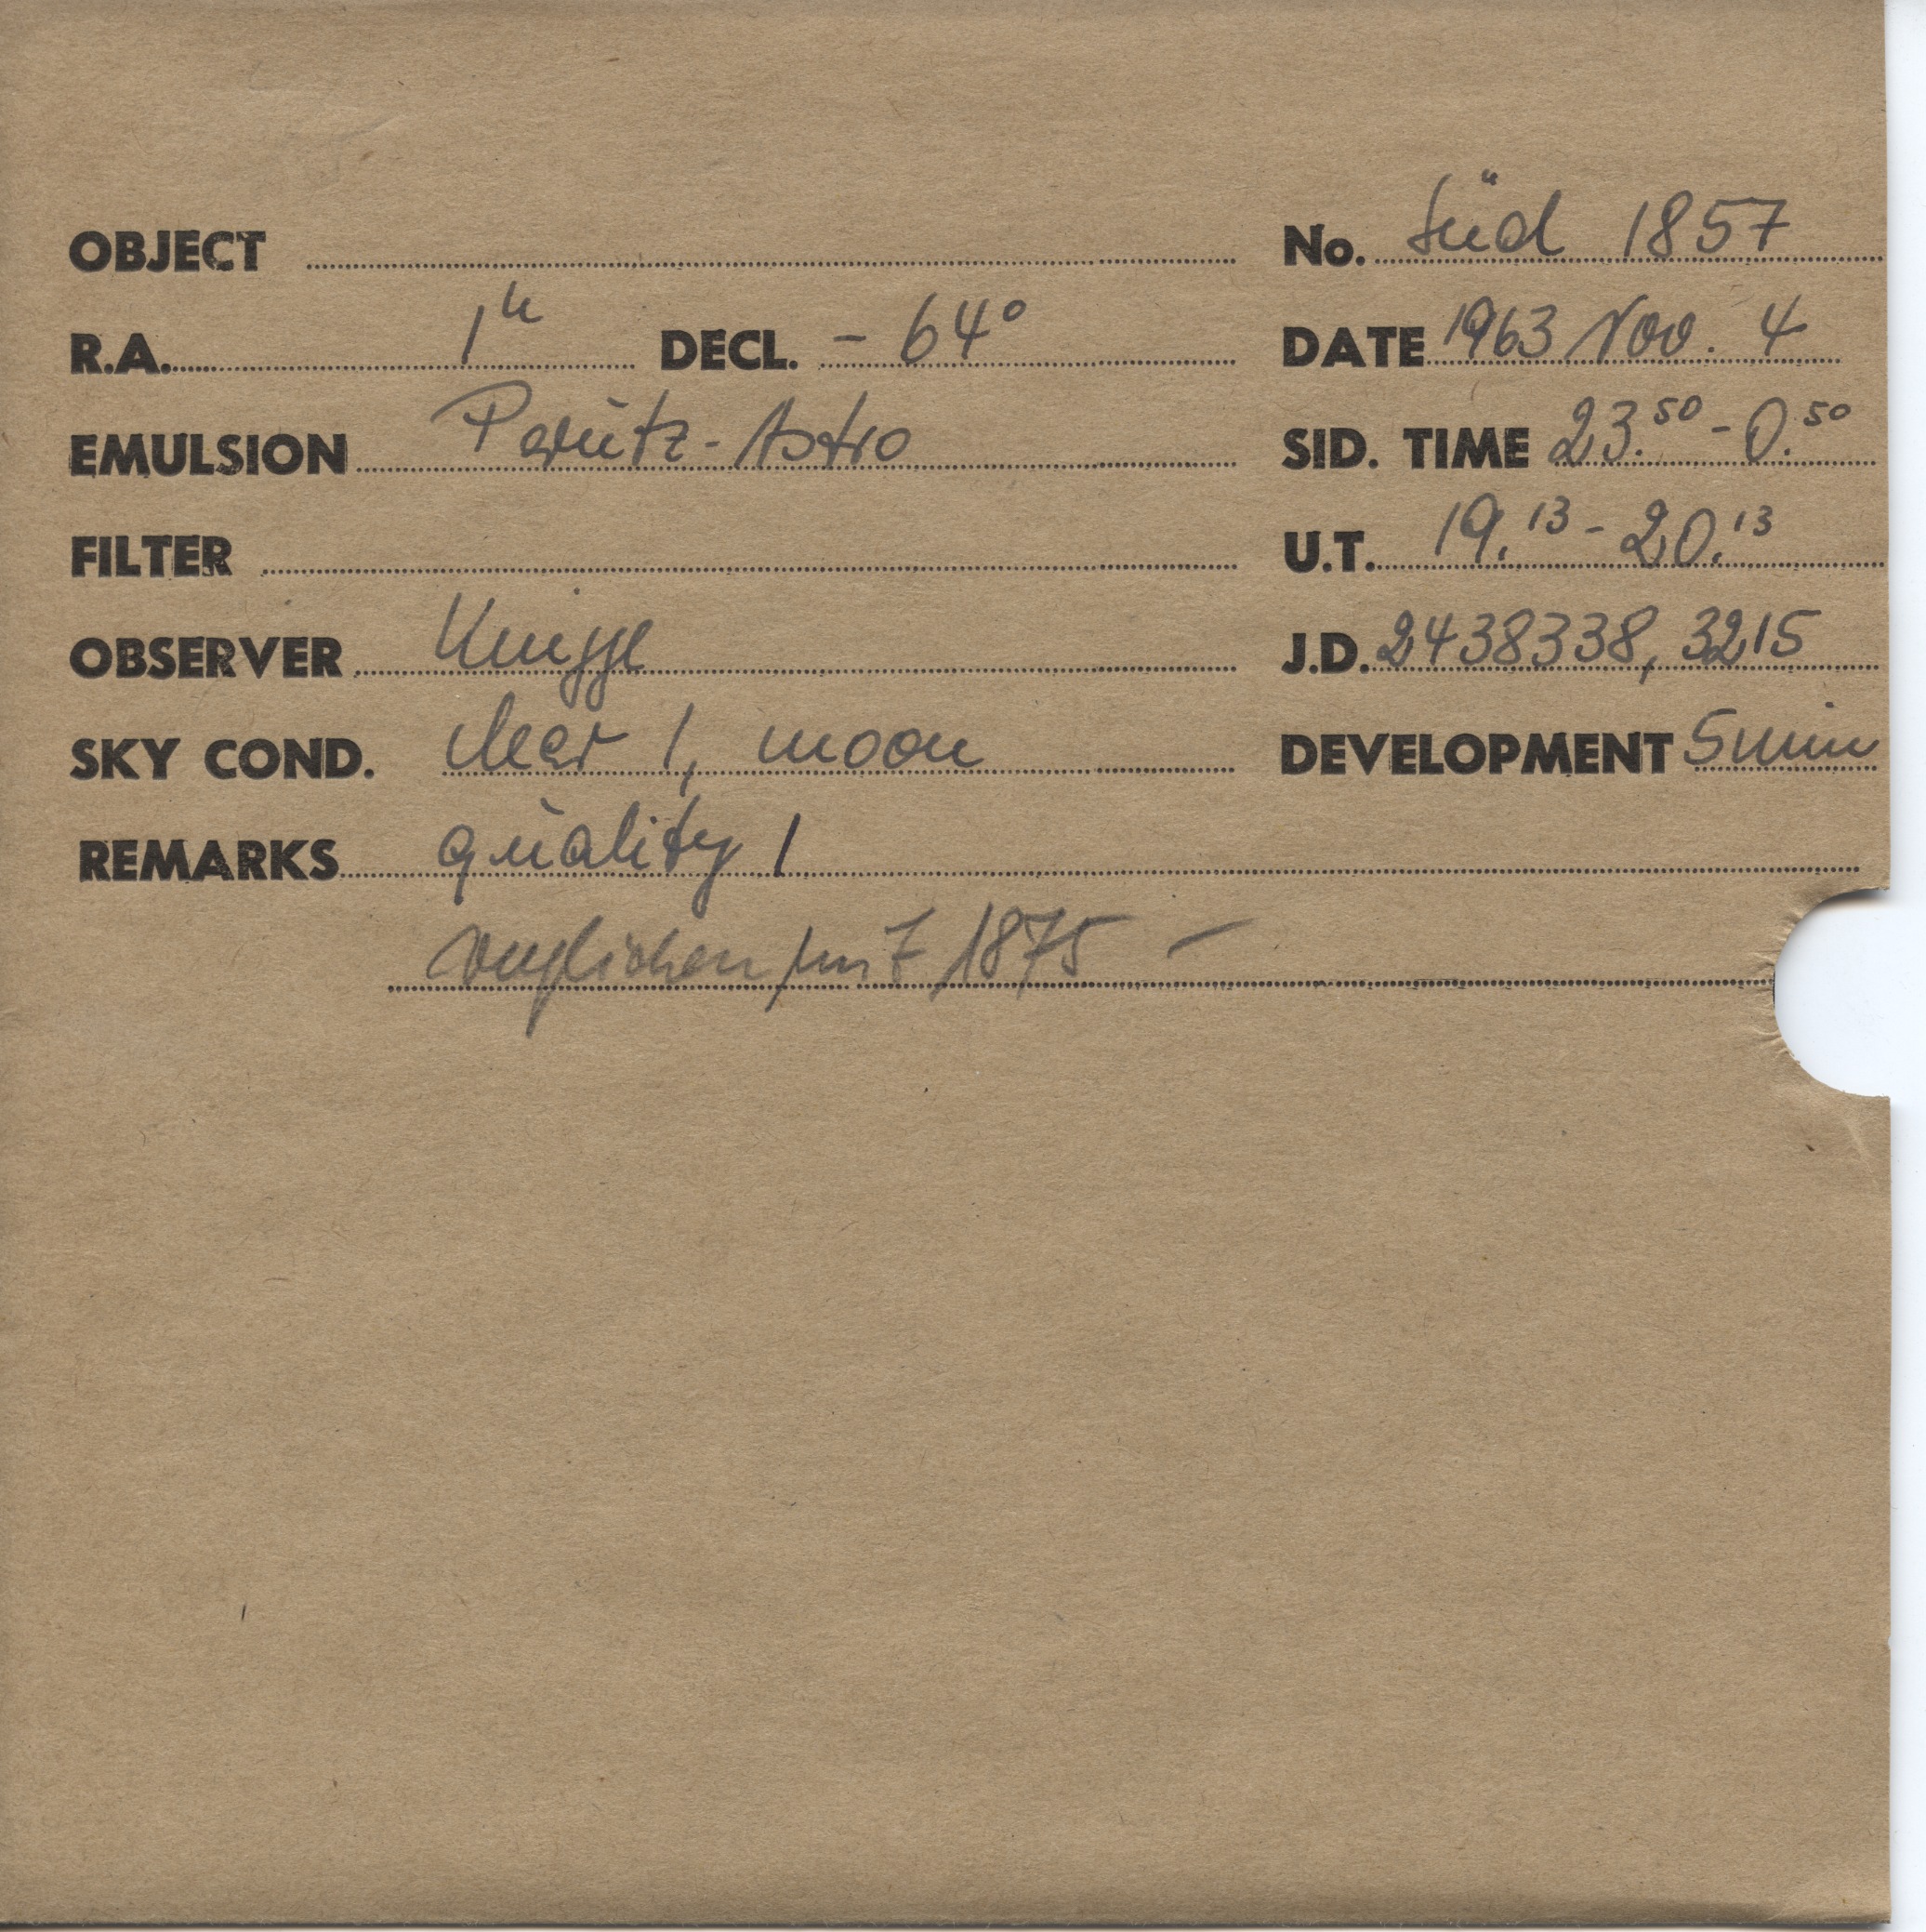 OBJECT No. Süd 1857
R.A. 1h DECL. - 64° DATE 1963 Nov. 4
EMULSION Perutz-Astro SID. TIME 23.50 - 0.50
FILTER U.T. 19.13 - 20.13
OBSERVER Knigge J.D. 2438338,3215
SKY COND. clear 1, moon DEVELOPMENT 5 min
REMARKS quality 1
verglichen mit 1875 —